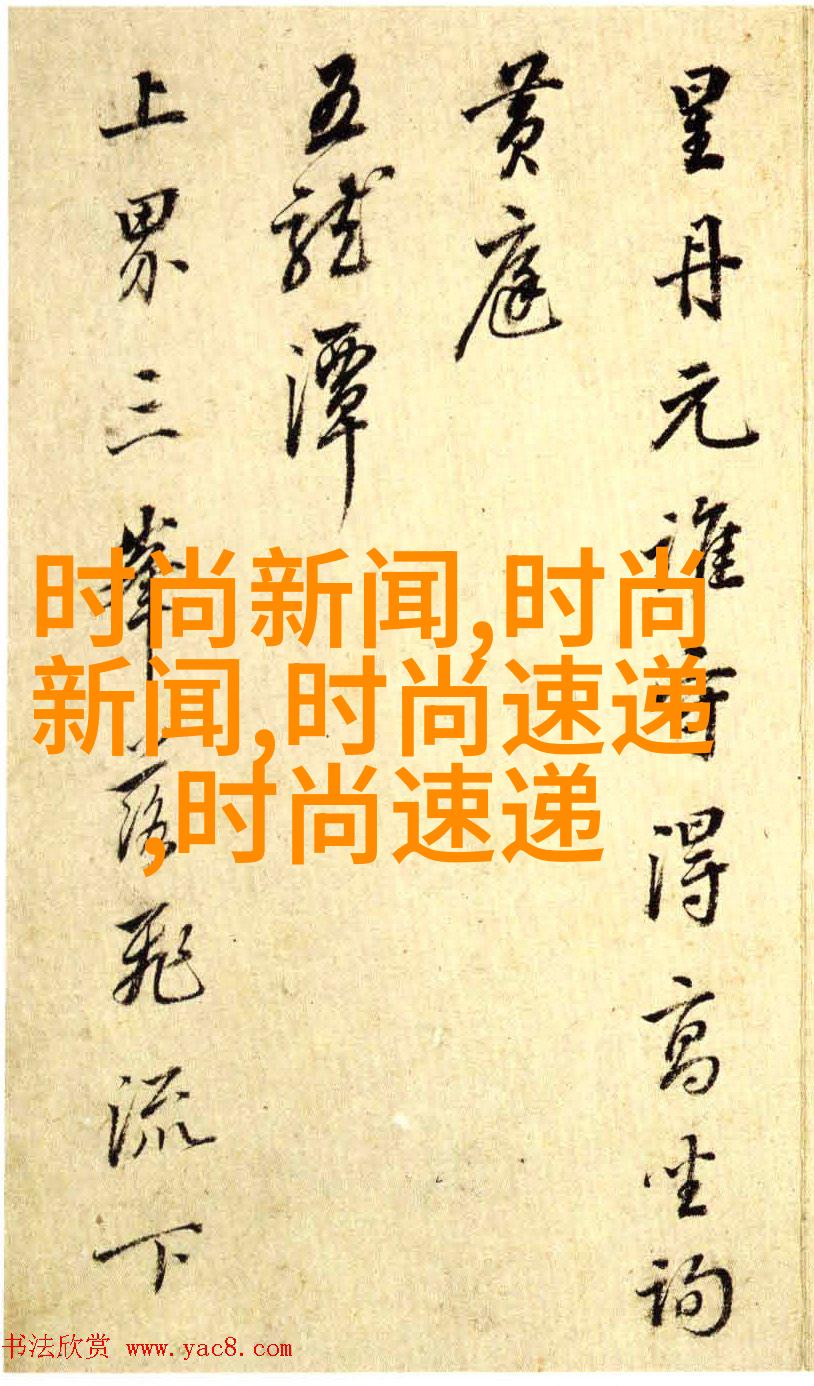 星丹元誰得高坐詢
黄庭
五龍潭
上界三峯落飛流下
时尚新闻,时尚
新闻,时尚速递
,时尚速递
书法欣赏 www.yac8.com